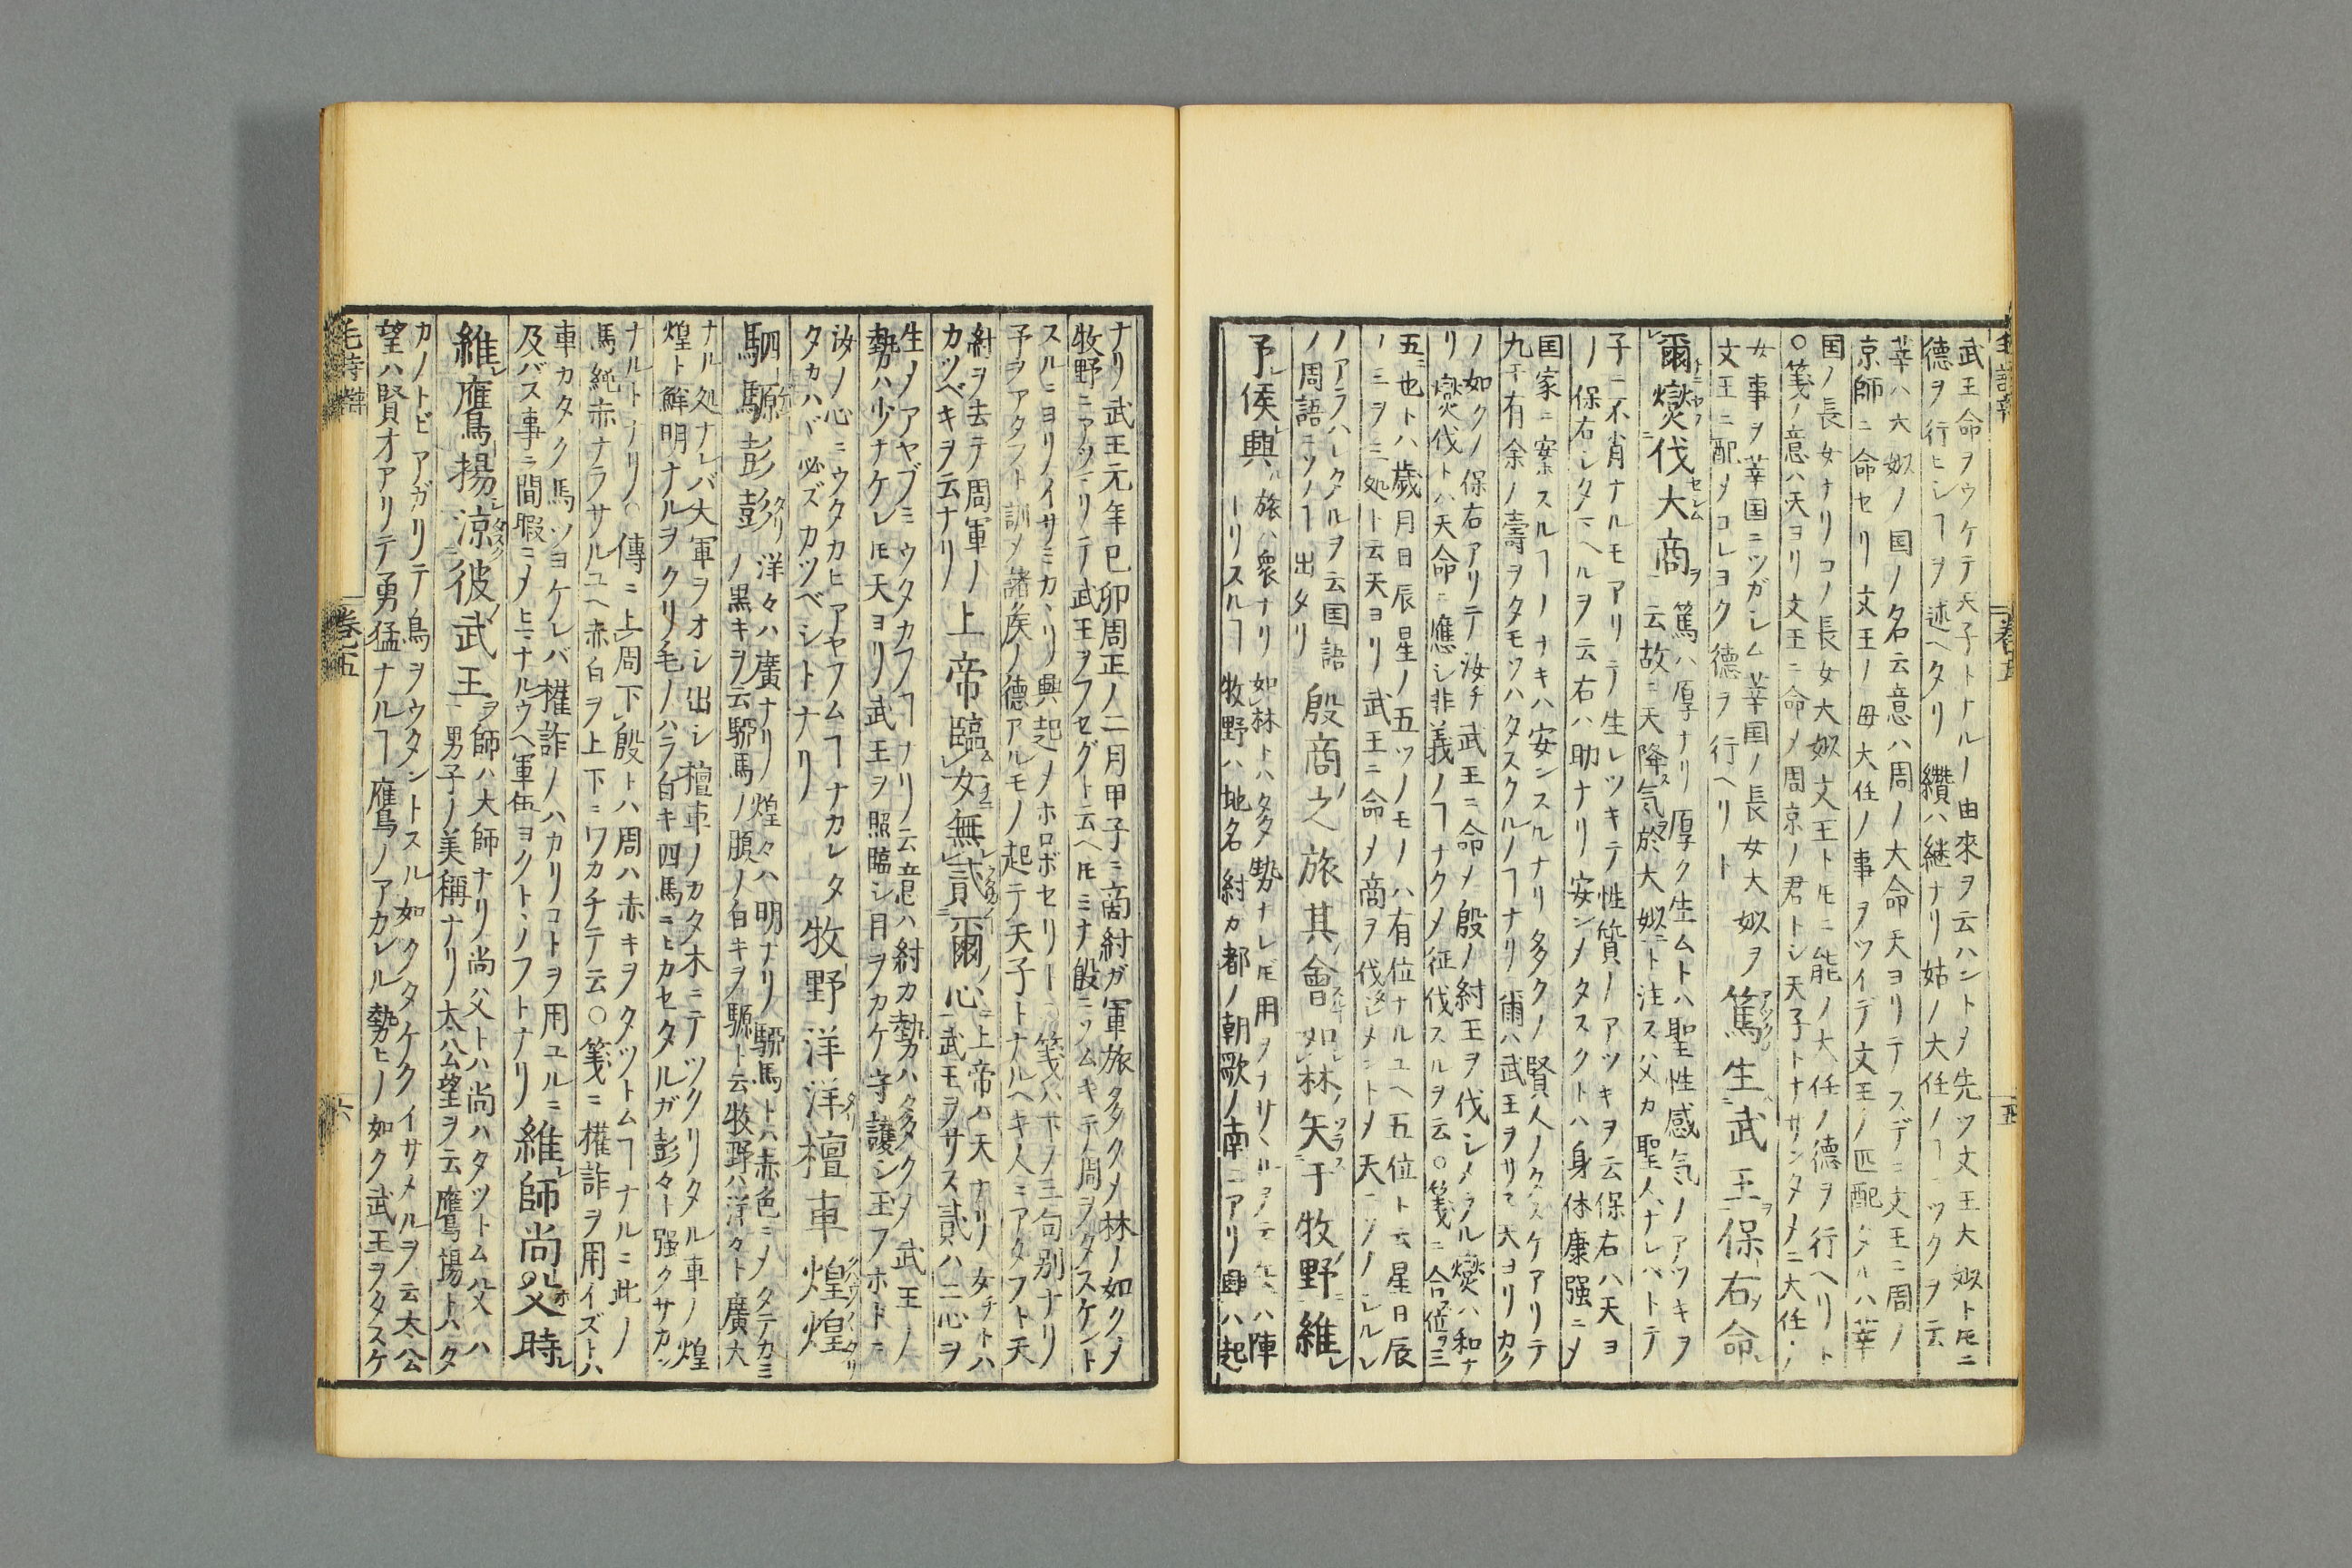 武王命ヲウケテ天子トナルノ由來ヲ云ハントメ先ツ文王大姒トモニ
德ヲ行ヒシヿヲ述ヘタリ 纘ハ継ナリ姑ノ大任ノヿニツクヲ云
莘ハ大姒ノ国ノ名云意ハ周ノ大命天ヨリテスデニ文王ニ周ノ
京師ニ命セリ文王ノ母大任ノ事ヲツイデ文王ノ匹配タルハ莘
国ノ長女ナリコノ長女大姒文王トモニ能ノ大任ノ德ヲ行ヘリト
○箋ノ意ハ天ヨリ文王ニ命メ周京ノ君トシ天子トナサンタメニ大任ノ
女事ヲ莘国ニツガシム莘国ノ長女大姒ヲ
文王ニ配メコレヨク德ヲ行ヘリト
篤生武王保右命
爾燮伐大商
篤ハ厚ナリ厚ク生ムトハ聖性感気ノアツキヲ
云故ニ天降気於大姒ト注ス父カ聖人ナレバトテ
子ニ不肖ナルモアリテ生レツキテ性質ノアツキヲ云保右ハ天ヨ
ノ保右シタマヘルヲ云右ハ助ナリ安ンメタスクトハ身体康强ニメ
国家ニ寮スルヿノナキハ安ンスルナリ多クノ賢人ノタスケアリテ
九十有余ノ壽ヲタモツハタスクルノヿナリ爾ハ武王ヲサス天ヨリカク
ノ如クノ保右アリテ汝チ武王ニ命メ殷ノ紂王ヲ伐シメラル燮ハ和ナ
リ燮伐トハ天命ニ應シ非義ノヿナクメ征伐スルヲ云○箋ニ合位ヲ三
五ニ也トハ歲月日辰星ノ五ツノモノハ有位ナルユヘ五位ト云星日辰
ノ三ヲ三処ト云天ヨリ武王ニ命メ商ヲ伐シメントメ天ニソノシルシ
ノアラハレタルヲ云国語
ノ周語ニソノヿ出タリ
殷商之旅其會如林矢于牧野維
予侯興
旅ハ衆ナリ如林トハ多勢ナレモ用ヲナサヽル
牧野ハ地名紂カ都ノ朝歌ノ南ニアリ興ハ起
ナリ武王元年已卯周正ノ二月甲子ニ商紂ガ軍旅多クメ林ノ如クメ
牧野ニアツマリテ武王ヲフセグト云ヘモミナ殷ニソムキテ周ヲタスケント
スルニヨリイサミカヽリ興起メホロボセリト○箋ハ下ノ三句別ナリ
予ヲアタフト訓メ諸矦ノ德アルモノ起テ天子トナルヘキ人ニアタフト天
紂ヲ去テ周軍ノ
カツベキヲ云ナリ
上帝臨女無貳爾心
上帝ハ天ナリ女チトハ
武王ヲサス貳ハ二心ヲ
生メアヤブミウタカフヿナリ云意ハ紂カ勢ハ多クメ武王ノ
勢ハ少ナケレモ天ヨリ武王ヲ照臨シ目ヲカケ守護シ玉フホドニ
汝ノ心ニウタカヒアヤフムヿナカレタ
タカハヾ必ズカツベシトナリ
牧野洋洋檀車煌煌
駟騵彭彭
洋々ハ廣ナリ煌々ハ明ナリ騵馬トハ赤色ニメタテカミ
ノ黒キヲ云騵馬ノ腹ノ白キヲ騵ト云牧野ハ洋々ト廣大
ナル処ナレバ大軍ヲオシ出シ檀車ノカタ木ニテツクリタル車ノ煌
煌ト鮮明ナルヲクリ毛ノハラ白キ四馬ニヒカセタルガ彭々ト强クサカン
ナルトナリ○傳ニ上周下殷トハ周ハ赤キヲタツトムヿナルニ此ノ
馬純赤ナラサルユヘ赤白ヲ上下ニワカチテ云○箋ニ権詐ヲ用イズトハ
車カタク馬ツヨケレバ権詐ノハカリコトヲ用ユルニ
及バス事ニ間暇ニメヒマナルウヘ軍伍ヨクトヽノフトナリ
維師尚父時
維鷹揚涼彼武王
師ハ大師ナリ尚父トハ尚ハタツトム父ハ
男子ノ美稱ナリ太公望ヲ云鷹揚トハタ
カノトビアガリテ鳥ヲウタントスル如クタケクイサメルヲ云太公
望ハ賢才アリテ勇猛ナルヿ鷹ノアカレル勢ヒノ如ク武王ヲタスケ
毛詩辯
卷五
六